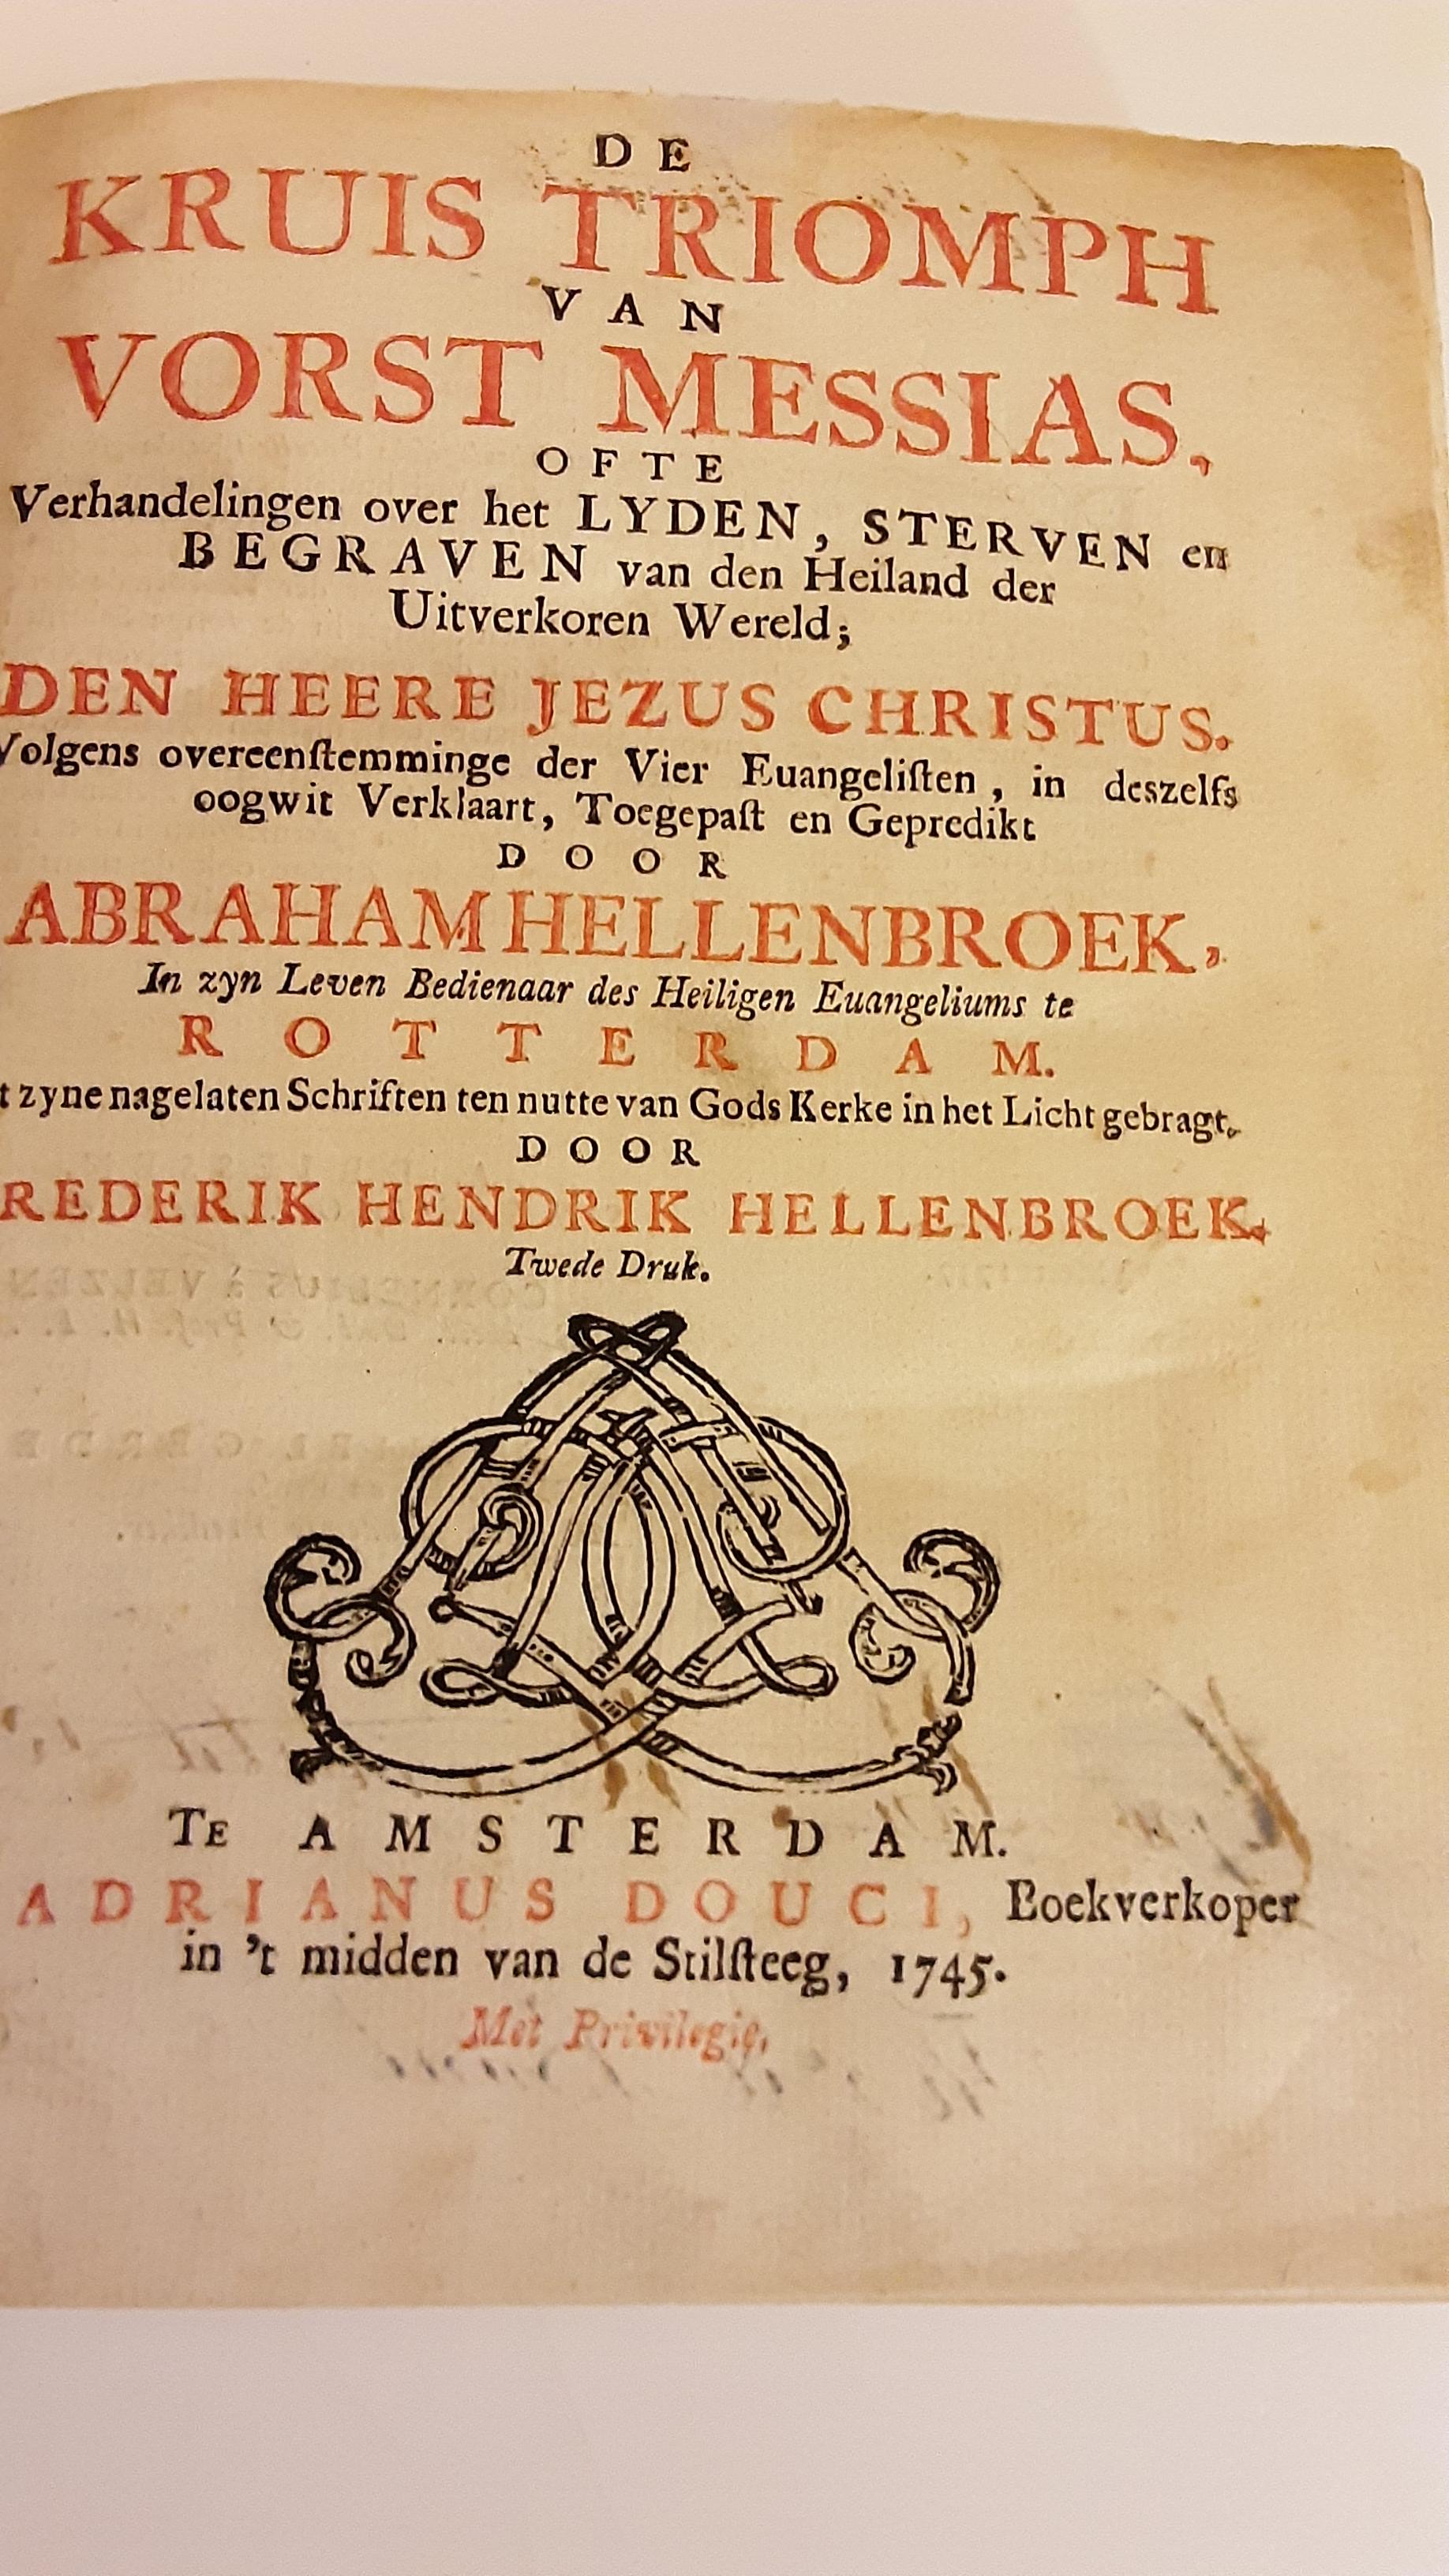 DE
KRUIS TRIOMPH
VAN
VORST MESSIAS,
OFTE
Verhandelingen over het LYDEN, STERVEN en
BEGRAVEN van den Heiland der
Uitverkoren Wereld;
DEN HEERE JEZUS CHRISTUS.
Volgens overeenſtemminge der Vier Euangeliſten, in deszelfs
oogwit Verklaart, Toegepaſt en Gepredikt
DOOR
ABRAHAM HELLENBROEK,
In zyn Leven Bedienaar des Heiligen Euangeliums te
ROTTERDAM.
t zyne nagelaten Schriften ten nutte van Gods Kerke in het Licht gebragt.
DOOR
REDERIK HENDRIK HELLENBROEK.
Twede Druk.
TE AMSTERDAM.
ADRIANUS DOUCI, Boekverkoper
in 't midden van de Stilſteeg, 1745.
Met Privilegie.